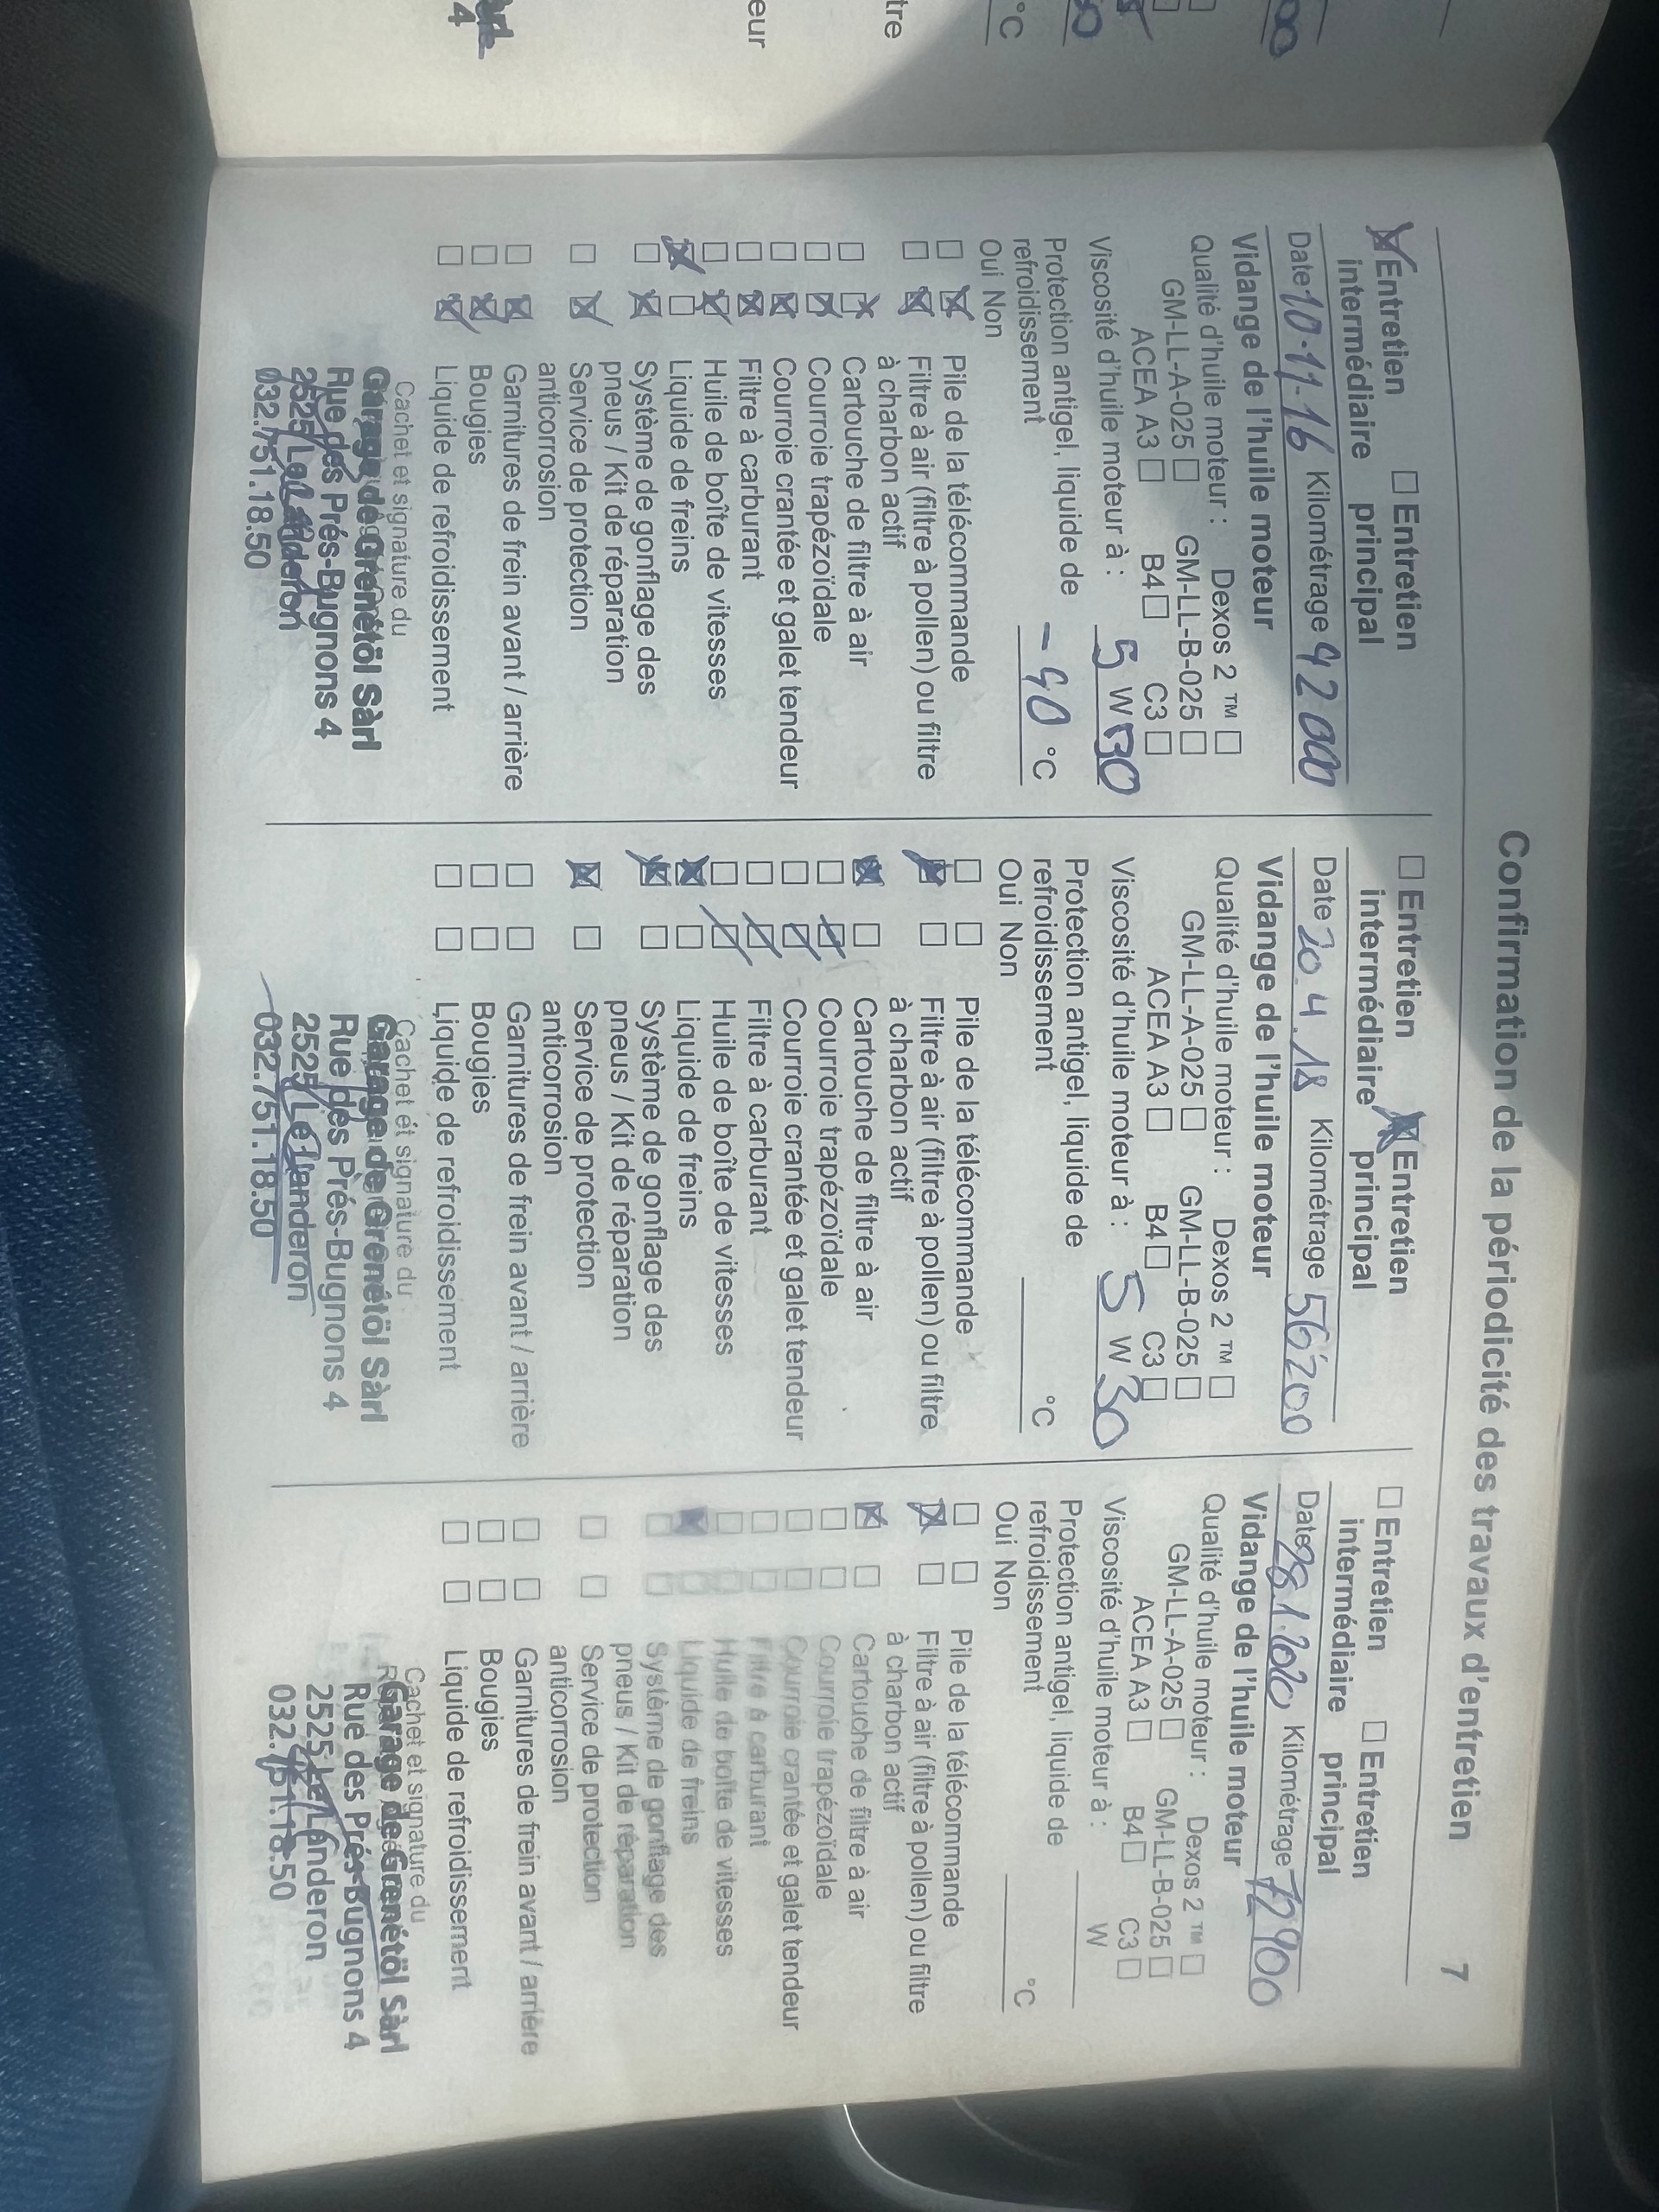 Confirmation de la périodicité des travaux d'entretien
7
Entretien intermédiaire
Entretien principal
Date 10.11.16 Kilométrage 42 000
Vidange de l'huile moteur
Qualité d'huile moteur : Dexos 2 ™
GM-LL-A-025 GM-LL-B-025
ACEA A3 B4 C3
Viscosité d'huile moteur à : 5 W 30
Protection antigel, liquide de
refroidissement -40 °C
Oui Non
Pile de la télécommande
Filtre à air (filtre à pollen) ou filtre
à charbon actif
Cartouche de filtre à air
Courroie trapézoïdale
Courroie crantée et galet tendeur
Filtre à carburant
Huile de boîte de vitesses
Liquide de freins
Système de gonflage des
pneus / Kit de réparation
Service de protection
anticorrosion
Garnitures de frein avant / arrière
Bougies
Liquide de refroidissement
Cachet et signature du
Garage de Grenétöl Sàrl
Rue des Prés-Bugnons 4
2525 Le Landeron
032.751.18.50
Entretien intermédiaire
Entretien principal
Date 20.4.18 Kilométrage 56'200
Vidange de l'huile moteur
Qualité d'huile moteur : Dexos 2 ™
GM-LL-A-025 GM-LL-B-025
ACEA A3 B4 C3
Viscosité d'huile moteur à : 5 W 30
Protection antigel, liquide de
refroidissement °C
Oui Non
Pile de la télécommande
Filtre à air (filtre à pollen) ou filtre
à charbon actif
Cartouche de filtre à air
Courroie trapézoïdale
Courroie crantée et galet tendeur
Filtre à carburant
Huile de boîte de vitesses
Liquide de freins
Système de gonflage des
pneus / Kit de réparation
Service de protection
anticorrosion
Garnitures de frein avant / arrière
Bougies
Liquide de refroidissement
Cachet et signature du
Garage de Grenétöl Sàrl
Rue des Prés-Bugnons 4
2525 Le Landeron
032.751.18.50
Entretien intermédiaire
Entretien principal
Date 28.1.2020 Kilométrage 72900
Vidange de l'huile moteur
Qualité d'huile moteur : Dexos 2 ™
GM-LL-A-025 GM-LL-B-025
ACEA A3 B4 C3
Viscosité d'huile moteur à : W
Protection antigel, liquide de
refroidissement °C
Oui Non
Pile de la télécommande
Filtre à air (filtre à pollen) ou filtre
à charbon actif
Cartouche de filtre à air
Courroie trapézoïdale
Courroie crantée et galet tendeur
Filtre à carburant
Huile de boîte de vitesses
Liquide de freins
Système de gonflage des
pneus / Kit de réparation
Service de protection
anticorrosion
Garnitures de frein avant / arrière
Bougies
Liquide de refroidissement
Cachet et signature du
Garage de Grenétöl Sàrl
Rue des Prés-Bugnons 4
2525 Le Landeron
032.751.18.50